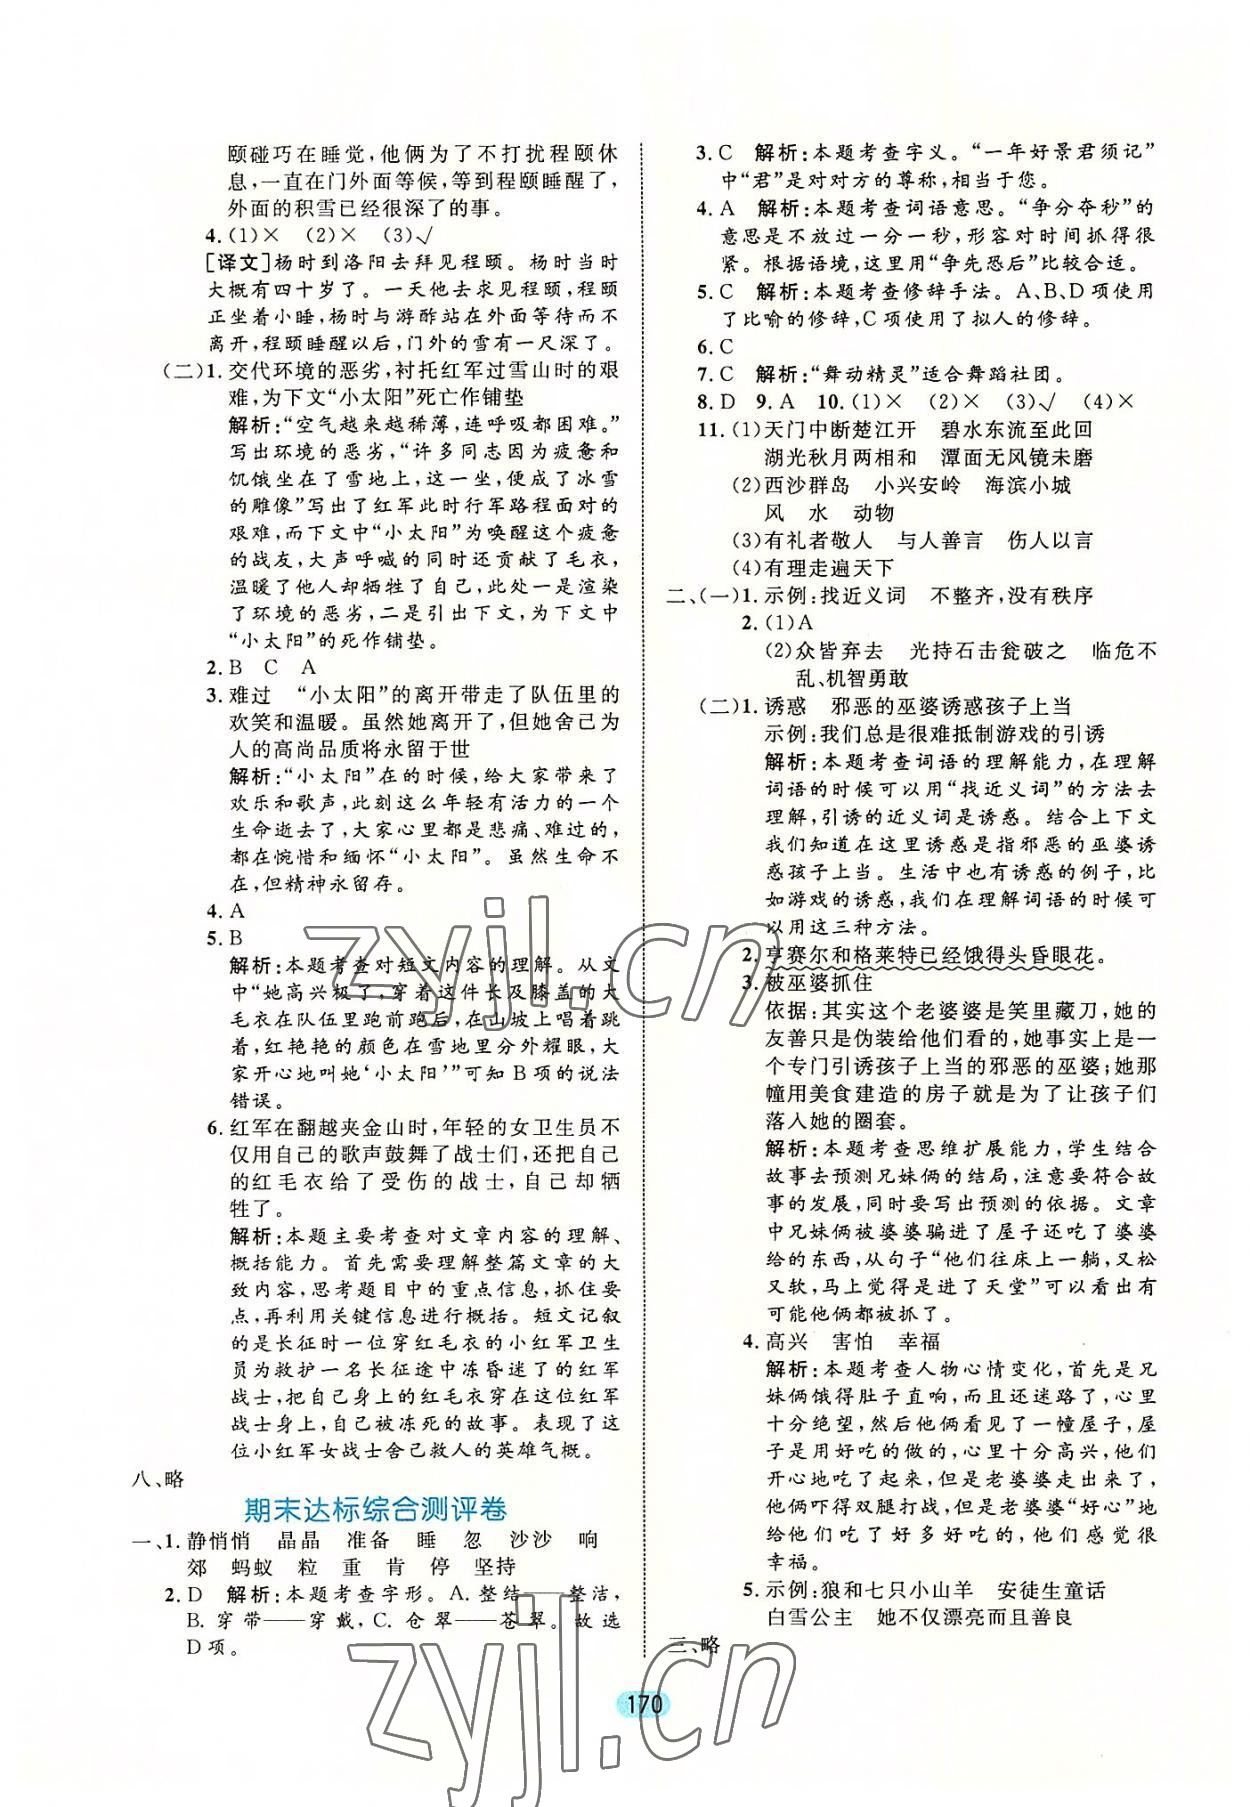 颐碰巧在睡觉,他俩为了不打扰程颐休
息,一直在门外面等候,等到程颐睡醒了,
外面的积雪已经很深了的事。
4.(1)× (2)× (3)√
[译文]杨时到洛阳去拜见程颐。杨时当时
大概有四十岁了。一天他去求见程颐,程颐
正坐着小睡,杨时与游酢站在外面等待而不
离开,程颐睡醒以后,门外的雪有一尺深了。
(二)1. 交代环境的恶劣,衬托红军过雪山时的艰
难,为下文“小太阳”死亡作铺垫
解析:“空气越来越稀薄,连呼吸都困难。”
写出环境的恶劣,“许多同志因为疲惫和
饥饿坐在了雪地上,这一坐,便成了冰雪
的雕像”写出了红军此时行军路程面对的
艰难,而下文中“小太阳”为唤醒这个疲惫
的战友,大声呼喊的同时还贡献了毛衣,
温暖了他人却牺牲了自己,此处一是渲染
了环境的恶劣,二是引出下文,为下文中
“小太阳”的死作铺垫。
2. B C A
3. 难过 “小太阳”的离开带走了队伍里的
欢笑和温暖。虽然她离开了,但她舍己为
人的高尚品质将永留于世
解析:“小太阳”在的时候,给大家带来了
欢乐和歌声,此刻这么年轻有活力的一个
生命逝去了,大家心里都是悲痛、难过的,
都在惋惜和缅怀“小太阳”。虽然生命不
在,但精神永留存。
4. A
5. B
解析:本题考查对短文内容的理解。从文
中“她高兴极了,穿着这件长及膝盖的大
毛衣在队伍里跑前跑后,在山坡上唱着跳
着,红艳艳的颜色在雪地里分外耀眼,大
家开心地叫她‘小太阳’”可知 B 项的说法
错误。
6. 红军在翻越夹金山时,年轻的女卫生员不
仅用自己的歌声鼓舞了战士们,还把自己
的红毛衣给了受伤的战士,自己却牺
牲了。
解析:本题主要考查对文章内容的理解、
概括能力。首先需要理解整篇文章的大
致内容,思考题目中的重点信息,抓住要
点,再利用关键信息进行概括。短文记叙
的是长征时一位穿红毛衣的小红军卫生
员为救护一名长征途中冻昏迷了的红军
战士,把自己身上的红毛衣穿在这位红军
战士身上,自己被冻死的故事。表现了这
位小红军女战士舍己救人的英雄气概。
八、略
期末达标综合测评卷
一、1. 静悄悄 晶晶 准备 睡 忽 沙沙 响
郊 蚂蚁 粒 重 肯 停 坚持
2. D 解析:本题考查字形。A. 整结——整洁,
B. 穿带——穿戴,C. 仓翠——苍翠。故选
D 项。
3. C 解析:本题考查字义。“一年好景君须记”
中“君”是对对方的尊称,相当于您。
4. A 解析:本题考查词语意思。“争分夺秒”的
意思是不放过一分一秒,形容对时间抓得很
紧。根据语境,这里用“争先恐后”比较合适。
5. C 解析:本题考查修辞手法。A、B、D 项使用
了比喻的修辞,C 项使用了拟人的修辞。
6. C
7. C 解析:“舞动精灵”适合舞蹈社团。
8. D 9. A 10.(1)× (2)× (3)√ (4)×
11.(1)天门中断楚江开 碧水东流至此回
湖光秋月两相和 潭面无风镜未磨
(2)西沙群岛 小兴安岭 海滨小城
风 水 动物
(3)有礼者敬人 与人善言 伤人以言
(4)有理走遍天下
二、(一)1. 示例:找近义词 不整齐,没有秩序
2.(1)A
(2)众皆弃去 光持石击瓮破之 临危不
乱、机智勇敢
(二)1. 诱惑 邪恶的巫婆诱惑孩子上当
示例:我们总是很难抵制游戏的引诱
解析:本题考查词语的理解能力,在理解
词语的时候可以用“找近义词”的方法去
理解,引诱的近义词是诱惑。结合上下文
我们知道在这里诱惑是指邪恶的巫婆诱
惑孩子上当。生活中也有诱惑的例子,比
如游戏的诱惑,我们在理解词语的时候可
以用这三种方法。
2. 亨赛尔和格莱特已经饿得头昏眼花。
3. 被巫婆抓住
依据:其实这个老婆婆是笑里藏刀,她的
友善只是伪装给他们看的,她事实上是一
个专门引诱孩子上当的邪恶的巫婆;她那
幢用美食建造的房子就是为了让孩子们
落入她的圈套。
解析:本题考查思维扩展能力,学生结合
故事去预测兄妹俩的结局,注意要符合故
事的发展,同时要写出预测的依据。文章
中兄妹俩被婆婆骗进了屋子还吃了婆婆
给的东西,从句子“他们往床上一躺,又松
又软,马上觉得是进了天堂”可以看出有
可能他俩都被抓了。
4. 高兴 害怕 幸福
解析:本题考查人物心情变化,首先是兄
妹俩饿得肚子直响,而且还迷路了,心里
十分绝望,然后他俩看见了一幢屋子,屋
子是用好吃的做的,心里十分高兴,他们
开心地吃了起来,但是老婆婆走出来了,
他俩吓得双腿打战,但是老婆婆“好心”地
给他们吃了好多好吃的,他们感觉很
幸福。
5. 示例:狼和七只小山羊 安徒生童话
白雪公主 她不仅漂亮而且善良
三、略
170
zyjl.cn
zyjl.cn